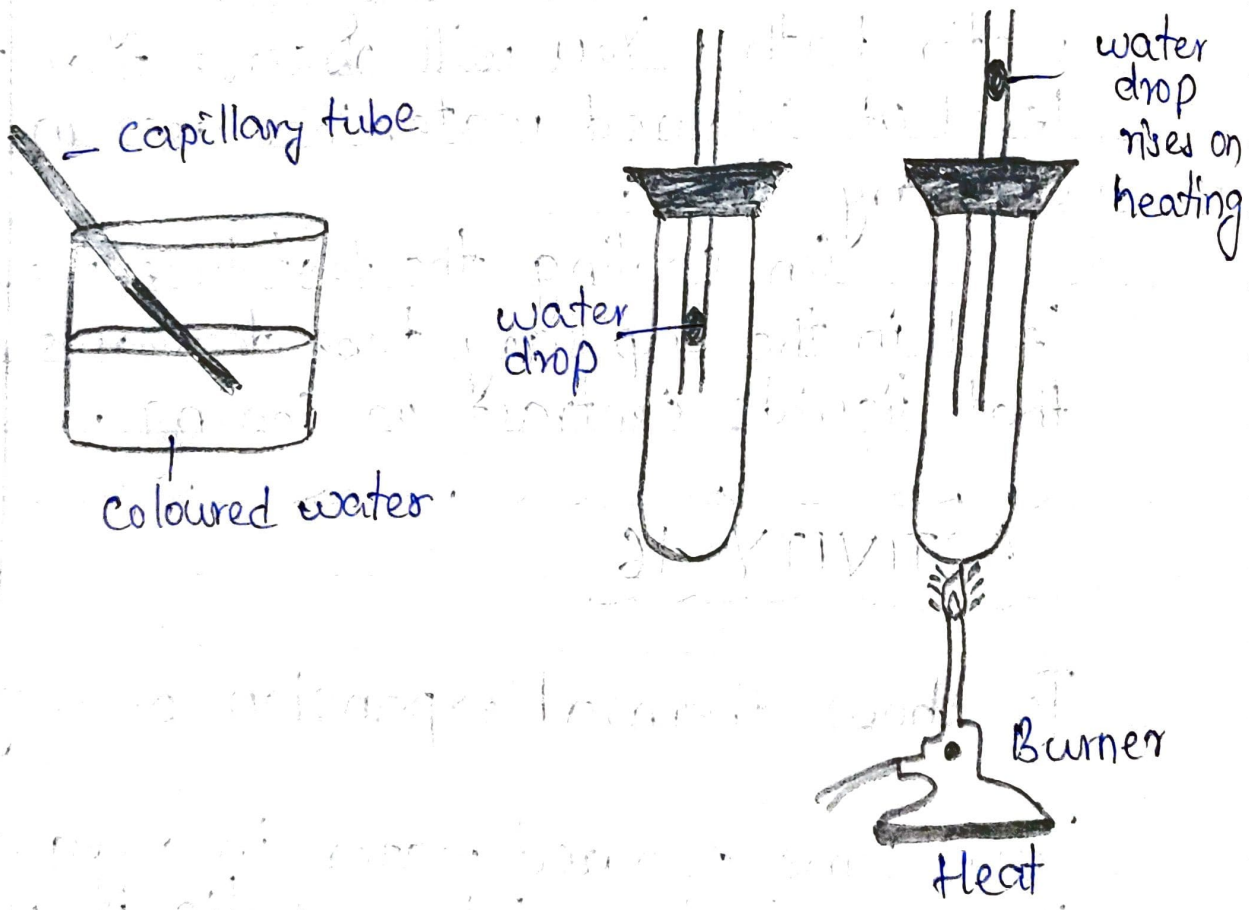 capillary tube
coloured water
water
drop
water
drop
rises on
heating
Burner
Heat